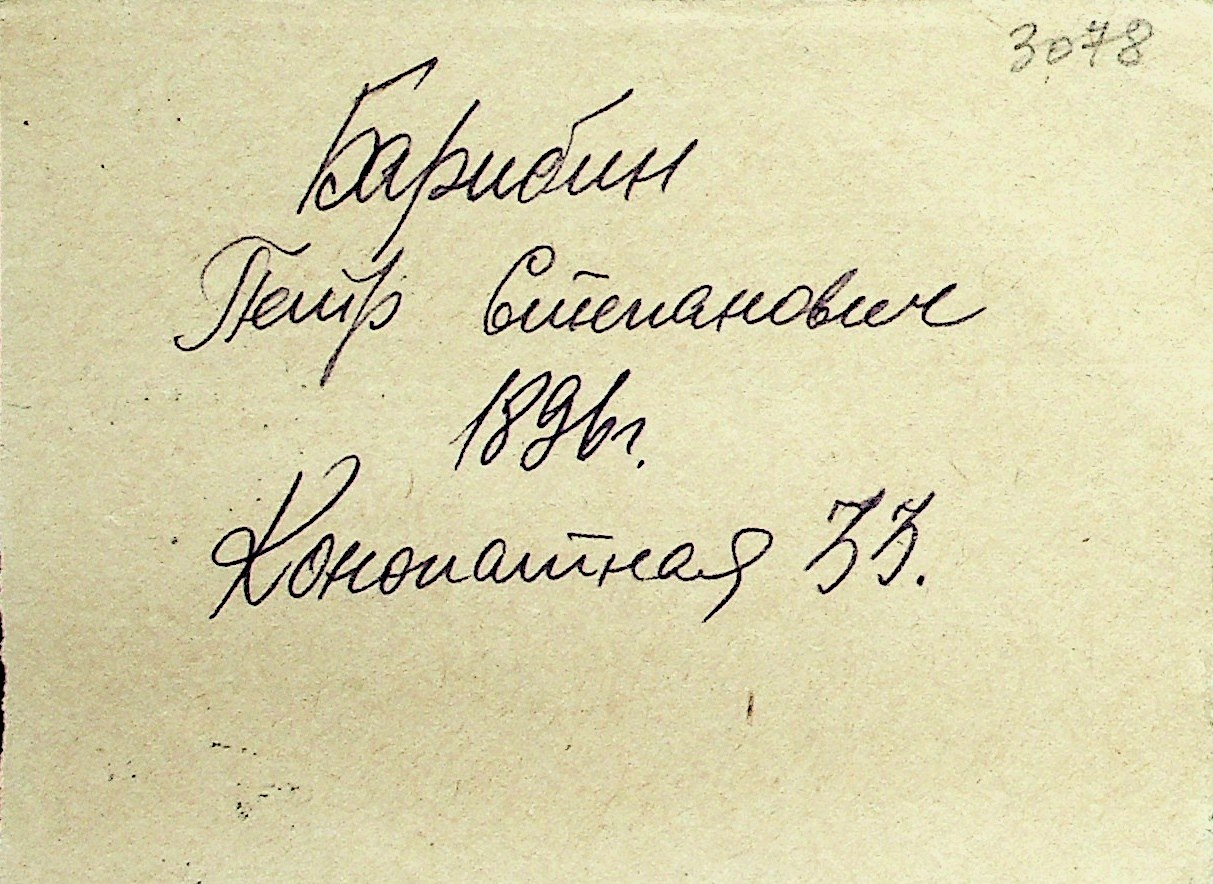 3078
Барибин
Петр Степанович
1896г.
Конопатная 33.